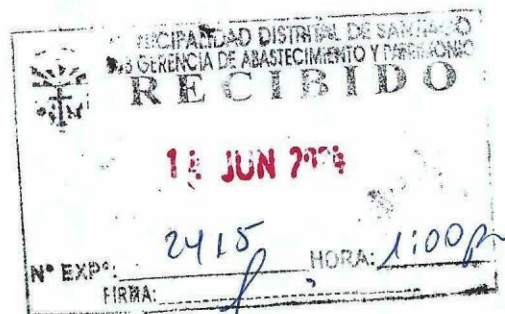 MUNICIPALIDAD DISTRITAL DE SANTIAGO
SUB GERENCIA DE ABASTECIMIENTO Y PATRIMONIO
RECIBIDO
JUN
N° EXP°: 2415 HORA: 1:00 pm
FIRMA: